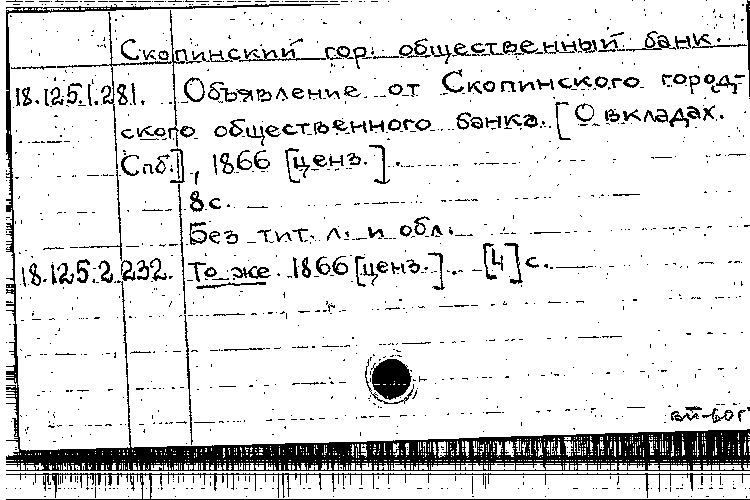 Скопинский гор. общественный банк.
18.125.1.281. Объявление от Скопинского город-
ского общественного банка. [О вкладах.
Спб.], 1866 [ценз.].
8 с.
Без тит. л. и обл.
18.125.2.232. То же. 1866 [ценз.]. [4] с.